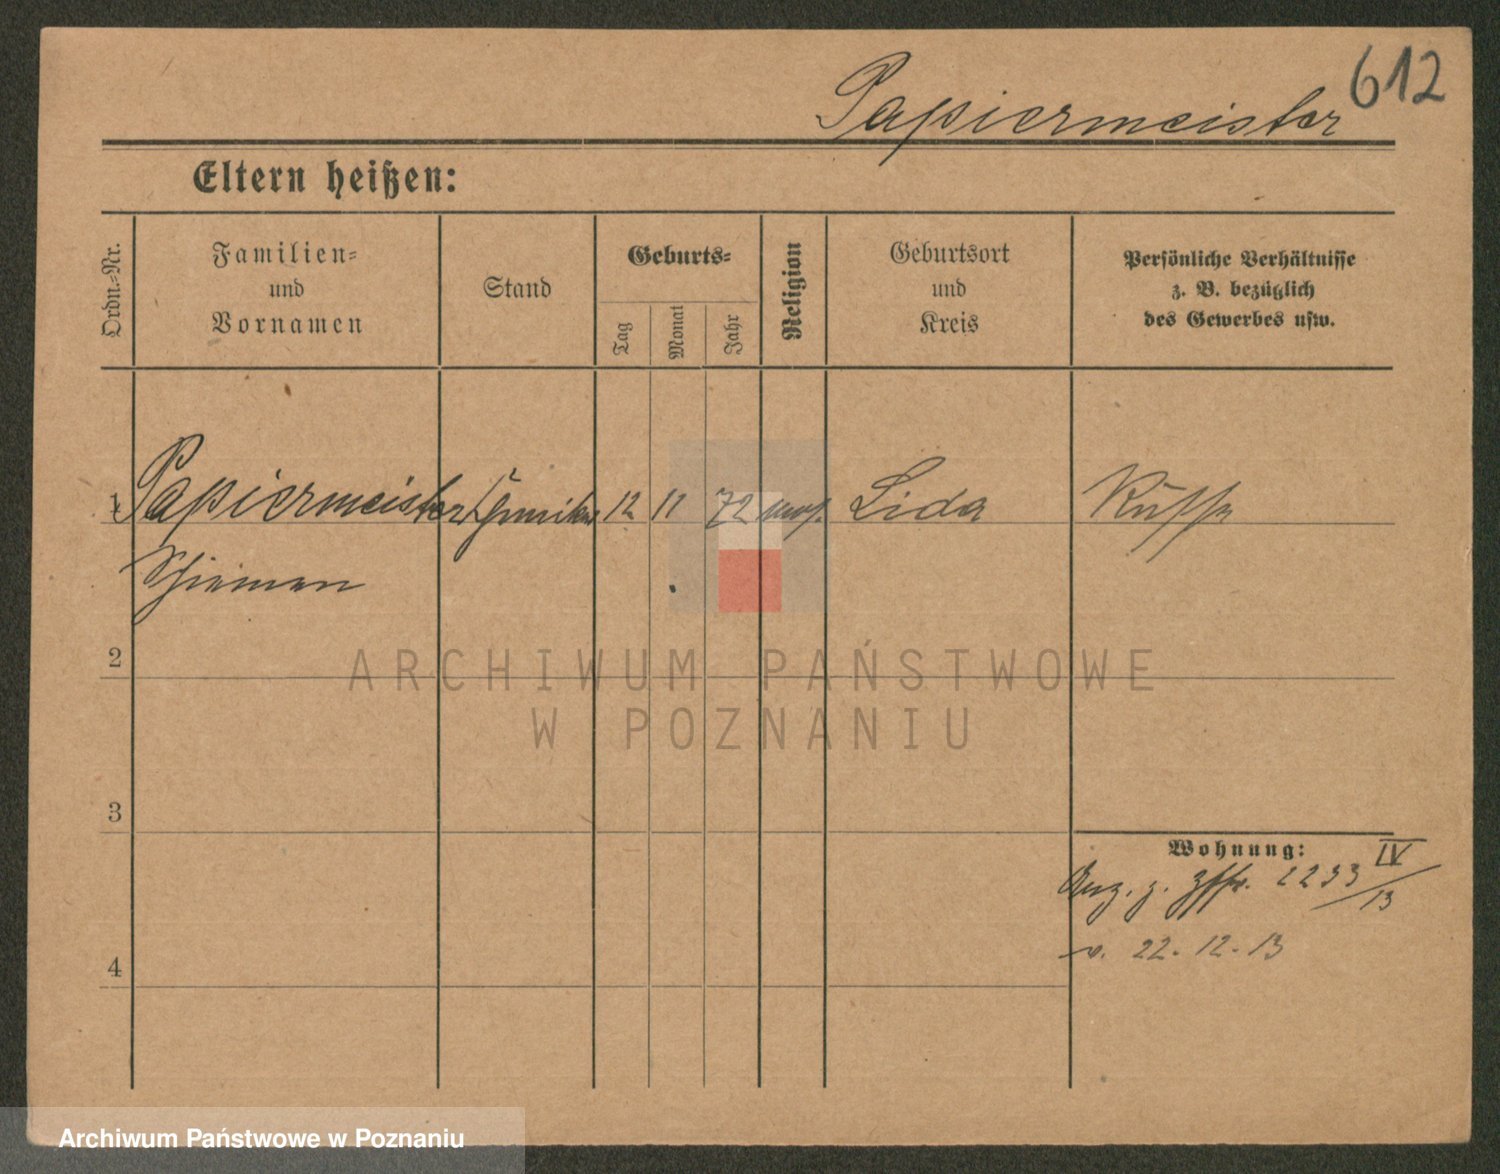 612
Papiermeister
Eltern heißen:
Ordn.-Nr.
Familien-
und
Vornamen
Stand
Geburts-
Tag
Monat
Jahr
Religion
Geburtsort
und
Kreis
Persönliche Verhältnisse
z. B. bezüglich
des Gewerbes usw.
1 Papiermeister 12 11 72 mos. Lida Russe
2
3
4
Wohnung:
z. 2233 IV/13
v. 22.12.13
ARCHIWUM PAŃSTWOWE
W POZNANIU
Archiwum Państwowe w Poznaniu